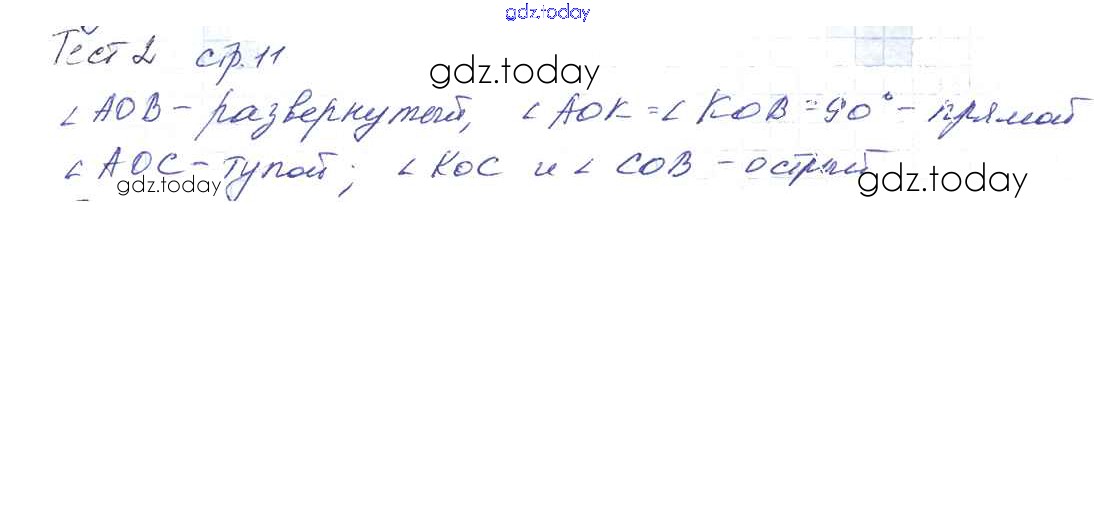 gdz.today
Тест 2 стр. 11
gdz.today
∠AOB - развернутый, ∠AOK = ∠KOB = 90° - прямой
∠AOC - тупой; ∠KOC и ∠COB - острый
gdz.today gdz.today